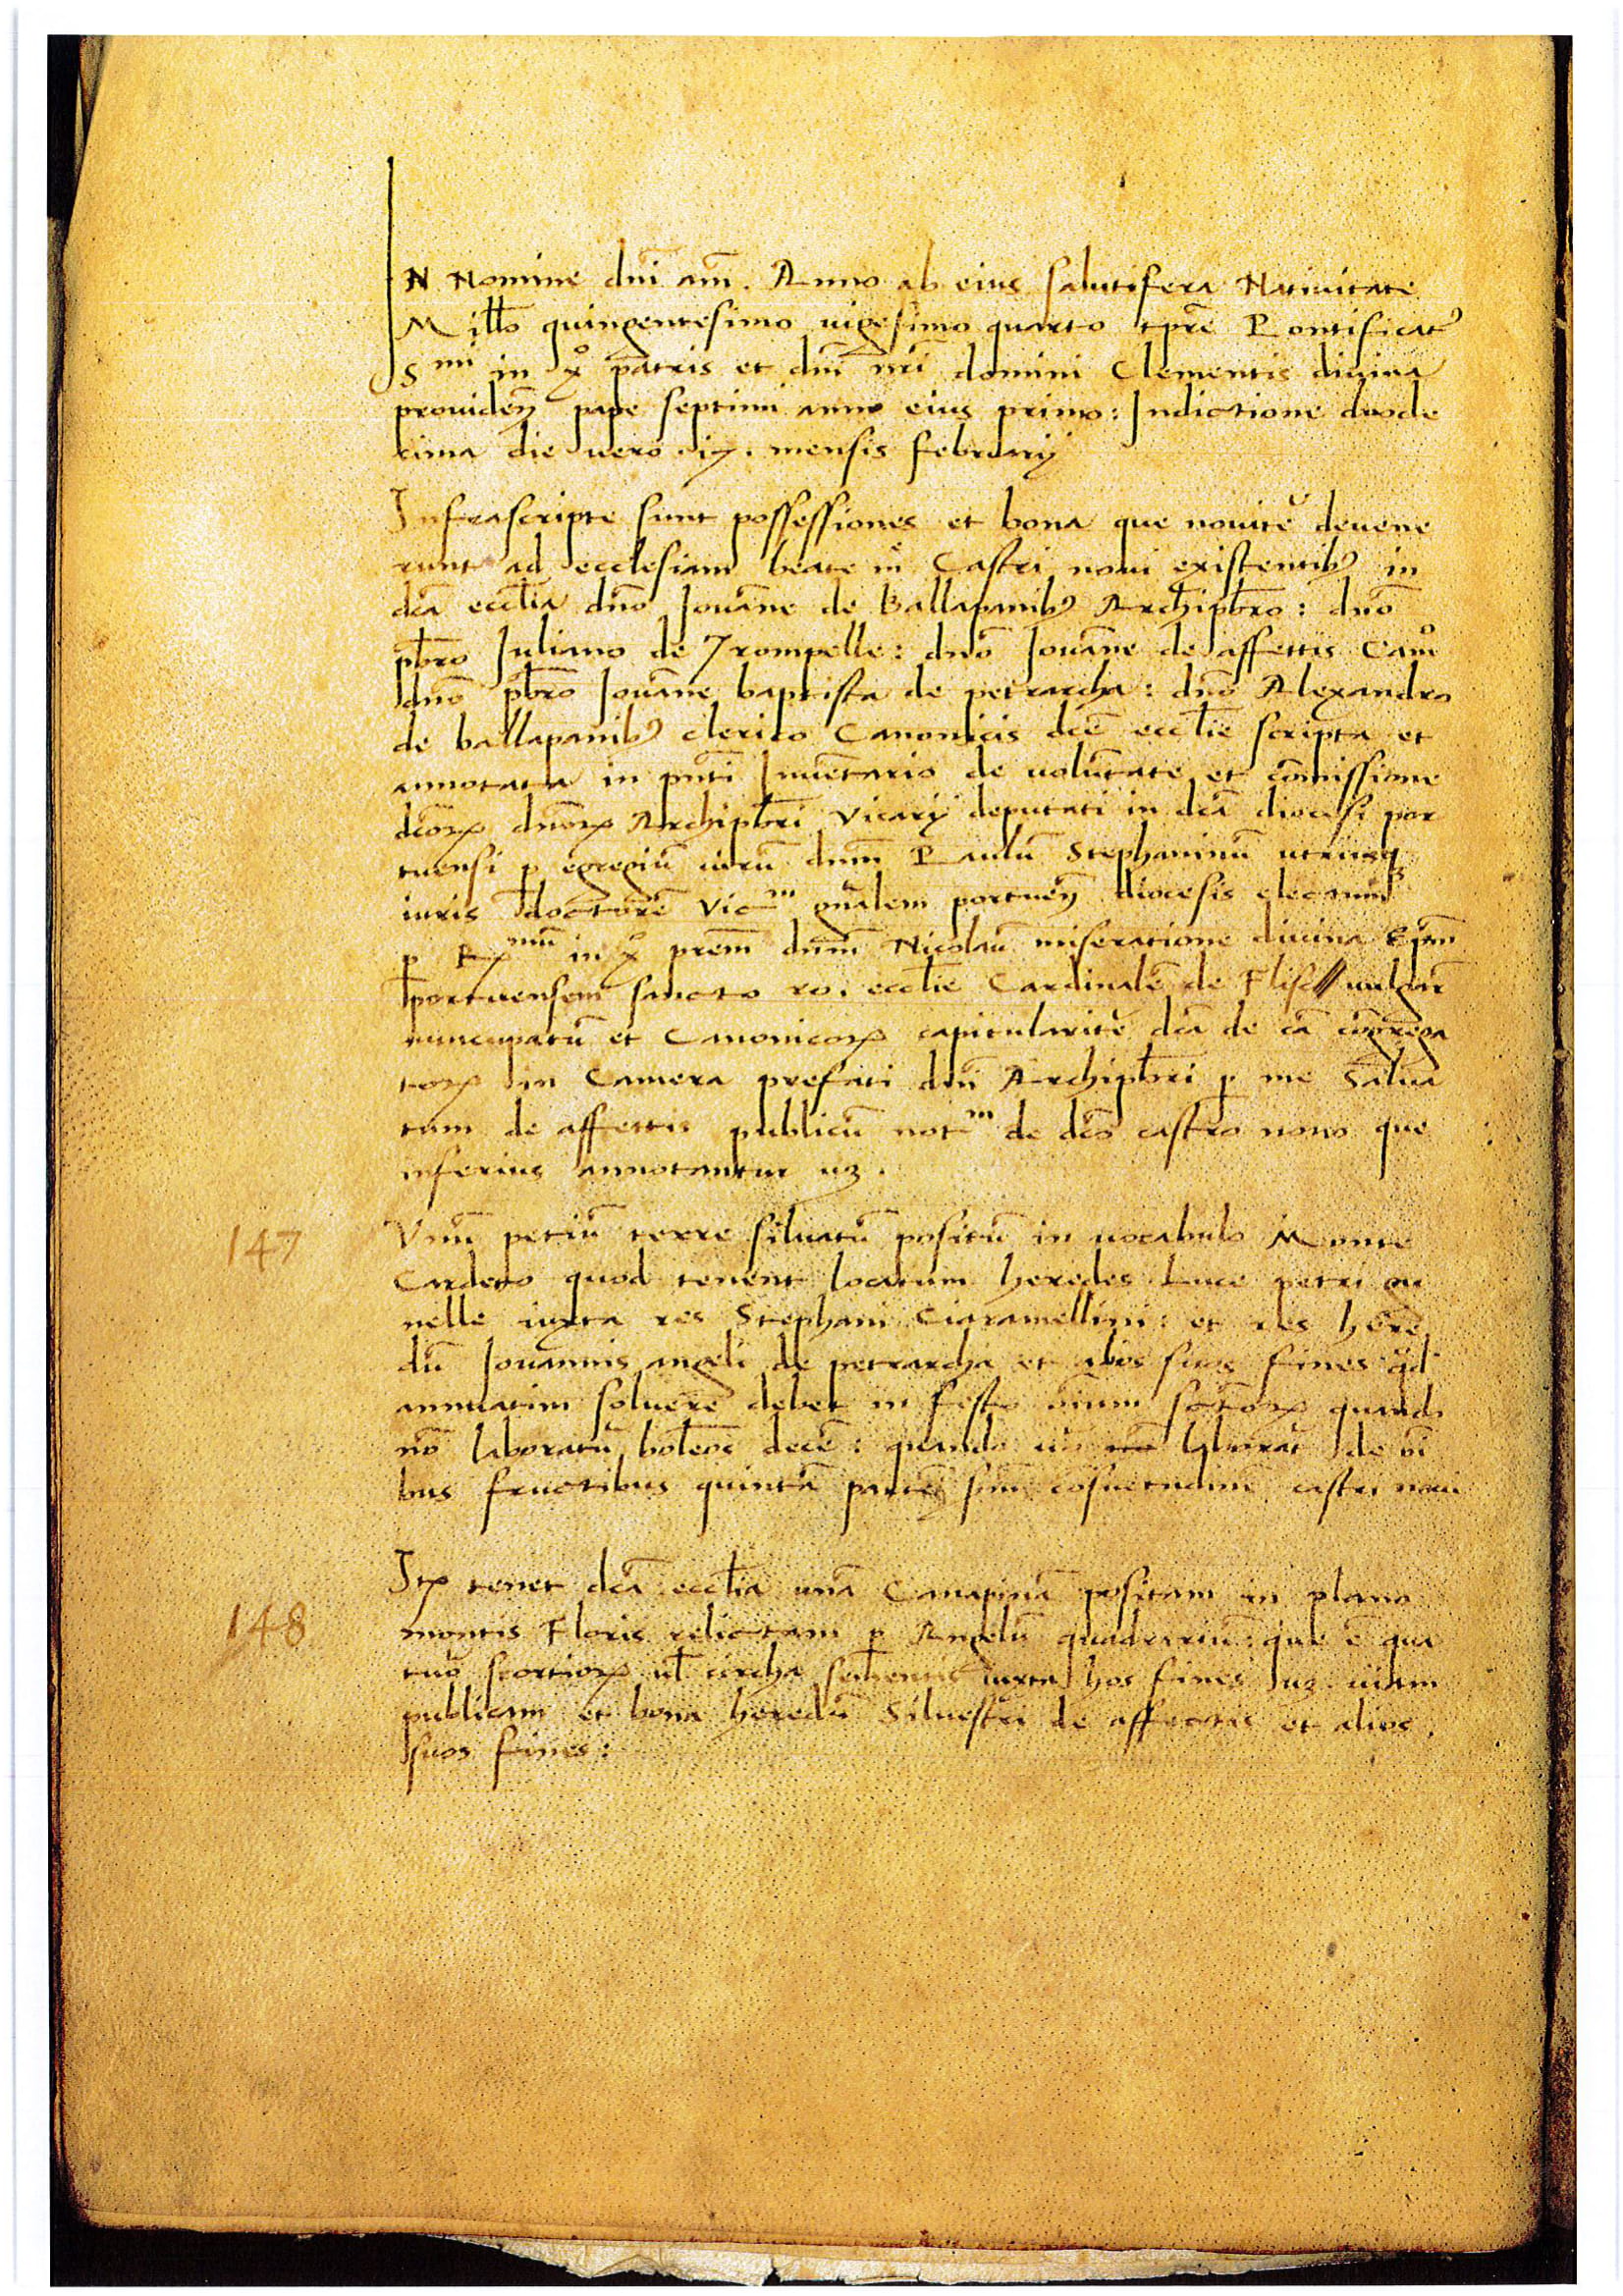 IN Nomine dnĩ am̃. Anno ab eius salutifera Natiuitate
Mill̃o quingentesimo uigesimo quarto tpr̃e Pontificat9
Smi in xº patris et dnĩ nr̃i domini Clementis diuina
prouiden pape septimi anno eius primo: Indictione duode
cima die uero .ix. mensis februarij
Infrascripte sunt possessiones et bona que nouitẽ deuene
runt ad ecclesiam beate m̃ Castri noui existentib9 in
dcã eccl̃ia dnõ Iouãne de Ballapanib9 Archip̃bro: dnõ
p̃bro Iuliano de Trompelle: dnõ Iouãne de affettis Camº
dnõ p̃bro Iouãne baptista de petrarcha: dnõ Alexandro
de ballapanib9 clerico Canonicis dcẽ eccl̃ie scripta et
annotata in pñti Inuẽtario de volũtate et cõmissione
dcõꝝ dnõꝝ Archip̃bri Vicarij deputati in dcã diocesi por
tuensi ꝑ egregiũ uirũ dnm̃ Paulũ Stephaninũ utriusqꝫ
iuris doctorẽ Vicm gñalem portueñ diocesis electum
ꝑ Rmũ in xº prem̃ dnm̃ Nicolaũ miseratione diuina Ep̃m
portuensem sancte ro. eccl̃ie Cardinalẽ de Flisco uulgar̃
nuncupatũ et Canonicoꝝ capitularitẽ dcã de cã cõgrega
toꝝ in Camera prefati dnĩ Archip̃bri ꝑ me Salua
tum de affettis publicũ notm de dcõ castro nouo que
inferius annotantur uꝫ.
147 Vnũ petiũ terre siluatũ positũ in uocabulo Monte
Cardeto quod tenent locatum heredes Luce petri
nelle iuxta res Stephani Ciaramellini: et res herẽ
dũ Iouannis angeli de petrarcha et alios suos fines qd̃
annuatim soluere debet in festo õium sctõꝝ quandº
nõ laboratũ bolẽos decẽ: quando uº laborat̃ de oĩ
bus fructibus quintã partẽ sm̃ cõsuetudinẽ castri noui
148 Itꝫ tenet dcã eccl̃ia unã Canapinã positam in plano
montis Floris relictam ꝑ Angelũ quadrariũ: que ẽ qua
tuoꝛ scortioꝝ ul̃ circha iuxta hos fines uꝫ uiam
publicam et bona heredũ Siluestri de affectis et alios
suos fines: